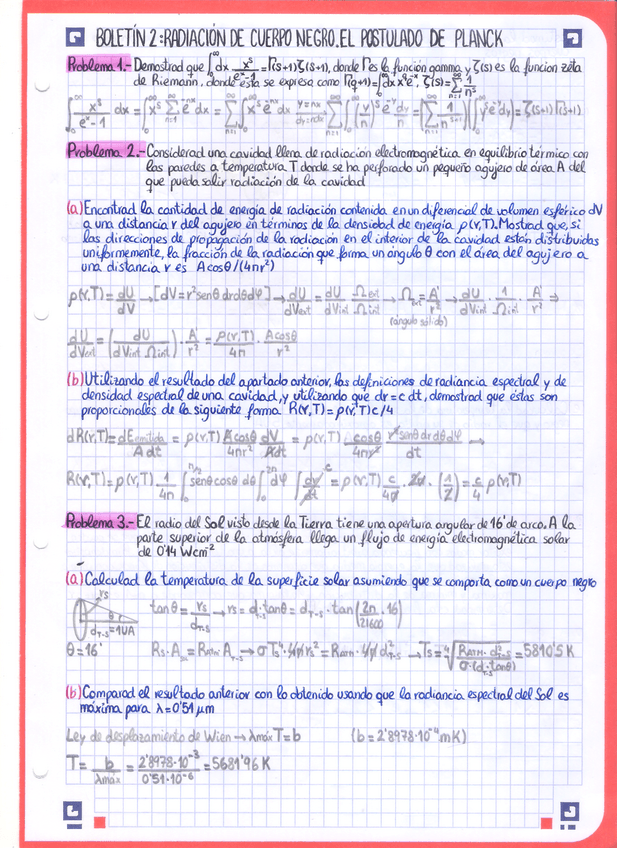 BOLETÍN 2: RADIACIÓN DE CUERPO NEGRO. EL POSTULADO DE PLANCK
Problema 1.- Demostrad que ∫₀^∞ dx x^s/(e^x-1) = Γ(s+1)ζ(s+1), donde Γ es la función gamma y ζ(s) es la funcion zeta
de Riemann, donde ésta se exprese como Γ(q+1)=∫₀^∞ dx x^q e^-x, ζ(s)=∑_{n=1}^∞ 1/n^s
∫₀^∞ x^s/(e^x-1) dx = ∫₀^∞ x^s ∑_{n=1}^∞ e^-nx dx = ∑_{n=1}^∞ ∫₀^∞ x^s e^-nx dx y=nx dy=ndx ∑_{n=1}^∞ ∫₀^∞ (y/n)^s e^-y dy/n = (∑_{n=1}^∞ 1/n^{s+1})(∫₀^∞ y^s e^-y dy) = ζ(s+1) Γ(s+1)
Problema 2.- Considerad una cavidad llena de radiación electromagnética en equilibrio térmico con
las paredes a temperatura T donde se ha perforado un pequeño agujero de área A del
que pueda salir radiación de la cavidad
(a) Encontrad la cantidad de energía de radiación contenida en un diferencial de volumen esférico dV
a una distancia r del agujero en términos de la densidad de energía ρ(ν,T). Mostrad que, si
las direcciones de propagación de la radiación en el interior de la cavidad están distribuidas
uniformemente, la fracción de la radiación que forma un ángulo θ con el área del agujero a
una distancia r es A cosθ/(4πr²)
ρ(ν,T) = dU/dV → [dV = r² senθ drdθdφ] → dU/dVext = dU/dVint Ωext/Ωint → Ωext = A'/r² → dU/dVint · 1/Ωint · A'/r² ⇒
(ángulo sólido)
dU/dVext = (dU/(dVint Ωint)) · A'/r² = ρ(ν,T)/4π · A cosθ/r²
(b) Utilizando el resultado del apartado anterior, las definiciones de radiancia espectral y de
densidad espectral de una cavidad, y utilizando que dr = c dt, demostrad que éstas son
proporcionales de la siguiente forma R(ν,T) = ρ(ν,T)c/4
dR(ν,T) = dEemitida/(A dt) = ρ(ν,T) A cosθ/(4πr²) dV/(A dt) = ρ(ν,T) cosθ/(4πr²) r² senθ dr dθ dφ/dt →
R(ν,T) = ρ(ν,T) 1/4π ∫₀^{π/2} senθ cosθ dθ ∫₀^{2π} dφ ∫ dr/dt c = ρ(ν,T) c/4π · 2π · (1/2) = c/4 ρ(ν,T)
Problema 3.- El radio del Sol visto desde la Tierra tiene una apertura angular de 16' de arco. A la
parte superior de la atmósfera llega un flujo de energía electromagnética solar
de 0'14 Wcm⁻²
(a) Calculad la temperatura de la superficie solar asumiendo que se comporta como un cuerpo negro
rs
θ
dT-S = 1UA
tanθ = rs/dT-S → rs = d·tanθ = dT-S · tan(2π/21600 · 16)
θ = 16'
Rs · A = RATM · AT-S → σTs⁴ · 4πrs² = RATM · 4π d²T-S → Ts = ⁴√(RATM · d²T-S/(σ·(d·tanθ)²)) = 5810'5 K
(b) Comparad el resultado anterior con lo obtenido usando que la radiancia espectral del Sol es
máxima para λ = 0'51 μm
Ley de desplazamiento de Wien → λmáx T = b (b = 2'8978·10⁻⁴ mK)
T = b/λmáx = 2'8978·10⁻³/0'51·10⁻⁶ = 5681'96 K